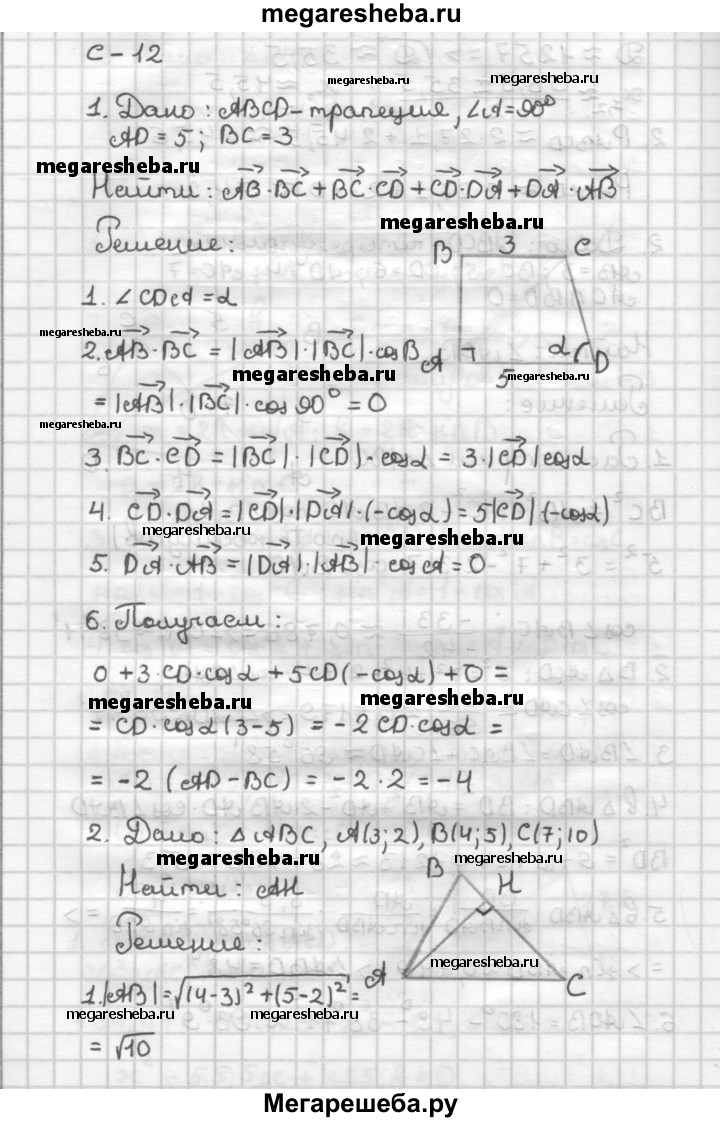 megaresheba.ru
С-12
megaresheba.ru
megaresheba.ru
1. Дано: ABCD-трапеция, ∠A=90°
AD=5; BC=3
megaresheba.ru
Найти: AB·BC+BC·CD+CD·DA+DA·AB
megaresheba.ru
Решение:
B 3 C
1. ∠CDA=α
megaresheba.ru
2. AB·BC = |AB|·|BC|·cosB
A α D
megaresheba.ru
5 megaresheba.ru
= |AB|·|BC|·cos90°=0
megaresheba.ru
3. BC·CD = |BC|·|CD|·cosα = 3·|CD|cosα
4. CD·DA=|CD|·|DA|·(-cosα)=5|CD|(-cosα)
megaresheba.ru
megaresheba.ru
5. DA·AB=|DA|·|AB|·cosA=0
6. Получаем:
0+3·CD·cosα+5CD(-cosα)+0=
megaresheba.ru
megaresheba.ru
= CD·cosα(3-5) = -2CD·cosα=
= -2 (AD-BC) = -2·2=-4
2. Дано: △ABC, A(3;2), B(4;5), C(7;10)
megaresheba.ru
megaresheba.ru
Найти: AH
B H
Решение:
megaresheba.ru
A C
1.|AB|=√(4-3)²+(5-2)²=
megaresheba.ru
megaresheba.ru
= √10
Мегарешеба.ру